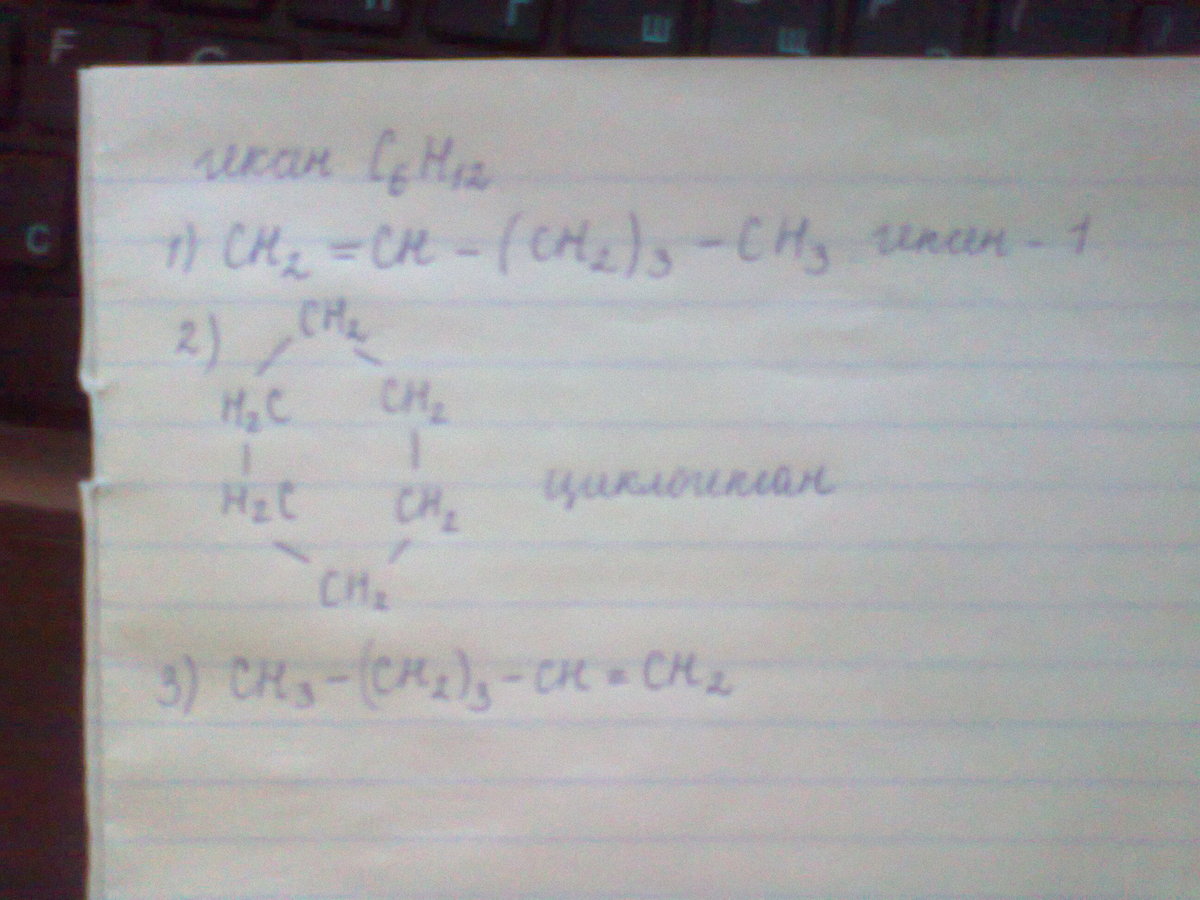 гексан C₆H₁₂
1) CH₂ = CH – (CH₂)₃ – CH₃ гексан – 1
2) CH₂
H₂C CH₂
H₂C CH₂ циклогексан
CH₂
3) CH₃ – (CH₂)₃ – CH = CH₂
F
G
Г
Ш
Щ
C